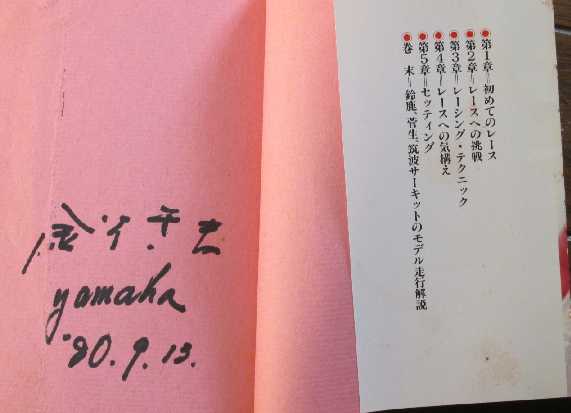 第1章=初めてのレース
第2章=レースへの挑戦
第3章=レーシング・テクニック
第4章=レースへの気構え
第5章=セッティング
巻 末=鈴鹿、菅生、筑波サーキットのモデル走行解説
yamaha
'80.9.13.